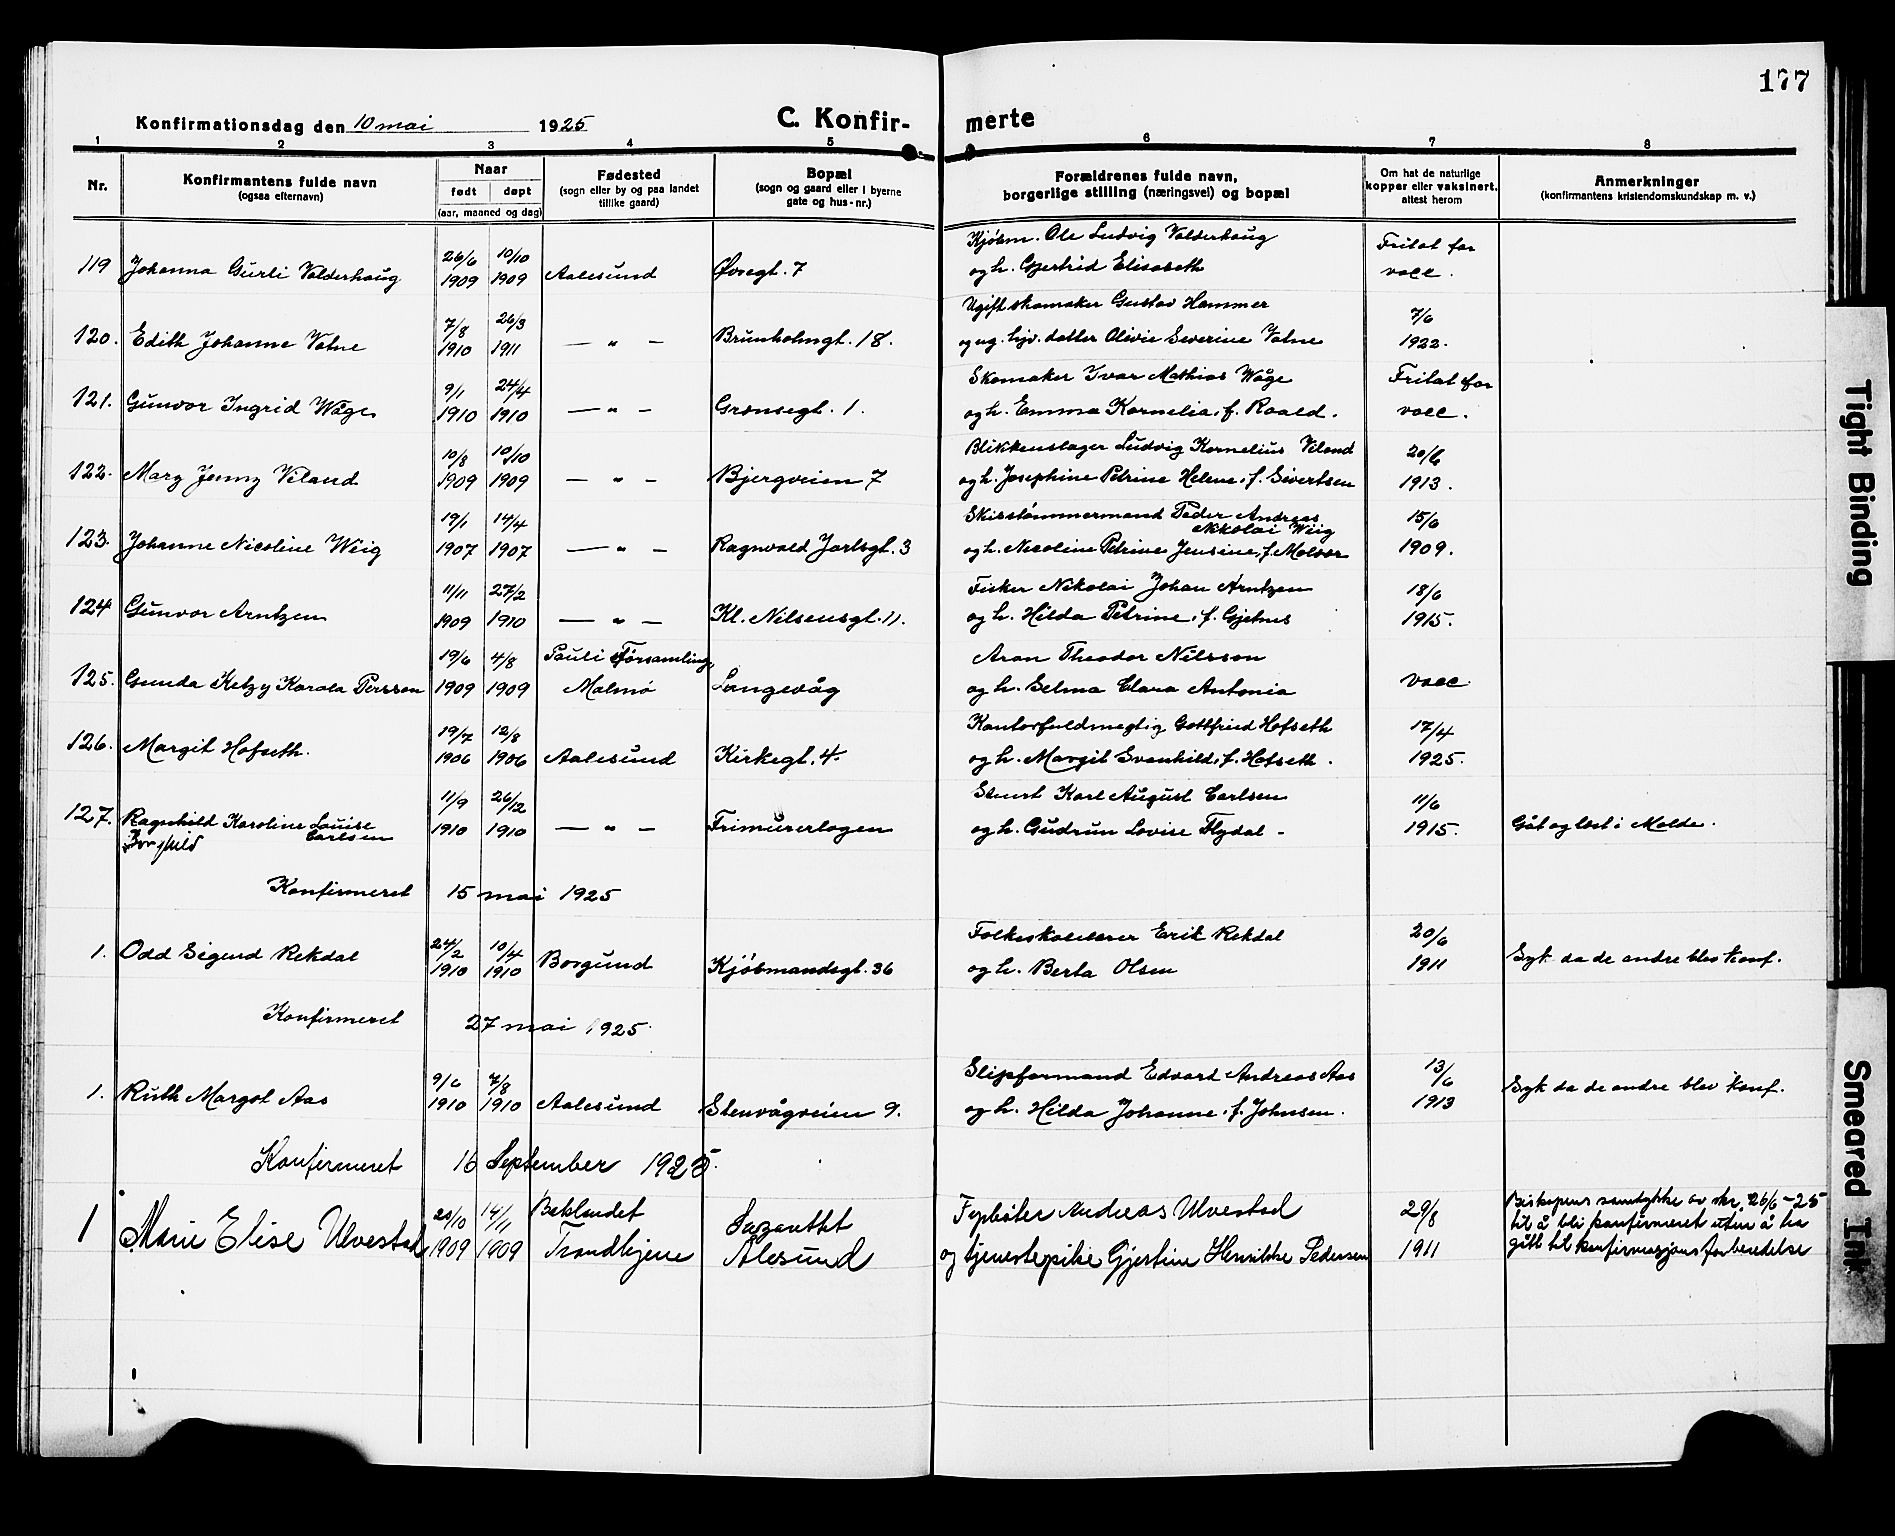 177
Konfirmationsdag den 10 mai 1925
C. Konfir-
merte
1 2 3 4 5 6 7 8
Nr.
Konfirmantens fulde navn
(ogsaa efternavn)
Naar
født døpt
(aar, maaned og dag)
Fødested
(sogn eller by og paa landet
tillike gaard)
Bopæl
(sogn og gaard eller i byerne
gate og hus-nr.)
Forældrenes fulde navn,
borgerlige stilling (næringsvei) og bopæl
Om hat de naturlige
kopper eller vaksinert.
attest herom
Anmerkninger
(konfirmantens kristendomskundskap m. v.)
Kjøbm. Ole Ludvig Valderhaug
26/6 10/10 Fritat for
119 Johanna Gurli Valderhaug 1909 1909 Aalesund Øvregt. 7 og h. Gjertrid Elisabeth vacc.
Ugift skomaker Gustav Hammer
7/8 26/3 7/6
120. Edith Johanne Vatne 1910 1911 — " — Brunholmgt. 18. og ug. hjv. datter Olivie Severine Vatne 1922.
9/1 24/4 Skomaker Ivar Mathias Wåge Fritat for
121. Gunvor Ingrid Wåge 1910 1910 — " — Grensegt. 1. og h. Emma Kornelia, f. Roald. vacc.
10/8 10/10 Blikkenslager Ludvig Kornelius Viland 20/6
122. Mary Jenny Viland 1909 1909 — " — Bjergveien 7 og h. Josephine Petrine Helene, f. Sivertsen 1913.
19/1 14/4 Skibstømmermand Peder Andreas 15/6
Nikkolai Wiig
123. Johanne Nicoline Wiig 1907 1907 — " — Ragnvald Jarlsgt. 3 og h. Nicoline Petrine Jensine, f. Molvær 1909.
11/11 27/2 Fisker Nikolai Johan Arntzen 18/6
124 Gunvor Arntzen 1909 1910 — " — Kl. Nilsensgt. 11. og h. Hilda Petrine, f. Gjetnes 1915.
19/6 4/8 Pauli Församling, Aron Theodor Nilsson
125. Gunda Ketzy Karola Persson 1909 1909 Malmö Langevåg og h. Selma Clara Antonia vacc.
19/7 12/8 Kontorfuldmegtig Gottfried Hofseth 17/4
126. Margit Hofseth. 1906 1906 Aalesund Kirkegt. 4. og h. Margit Svanhild, f. Hofseth. 1925.
11/9 26/12 Stuert Karl August Carlsen 11/6
127. Ragnhild Karoline Louise 1910 1910 — " — Frimurerlogen og h. Gudrun Lovise Flydal - 1915. Gåt og lest i Molde.
Borghild Carlsen
Konfirmeret 15 mai 1925
24/2 10/4 Folkeskolelærer Erik Rekdal 20/6
1. Odd Sigurd Rekdal 1910 1910 Borgund Kjøbmandsgt. 36 og h. Berta Olsen 1911 Syk da de andre blev konf.
Konfirmeret 27 mai 1925.
9/6 7/8 Slipformand Edvard Andreas Aas 13/6
1. Ruth Margot Aas 1910 1910 Aalesund Stenvågveien 9. og h. Hilda Johanne, f. Johnsen. 1913 Syk da de andre blev konf.
Konfirmeret 16 September 1925.
29/10 14/11 Beklandet Lazarettet Andreas Ulvestad 29/8 Biskopens samtykke av skr. 26/6-25
1 Marie Elise Ulvestad 1909 1909 Trondhjem Ålesund og tjenestepike Gjertine Henrikke Pedersen 1911 til å bli konfirmeret uten å ha
gått til konfirmasjonsforberedelse
Tight Binding
Smeared Ink